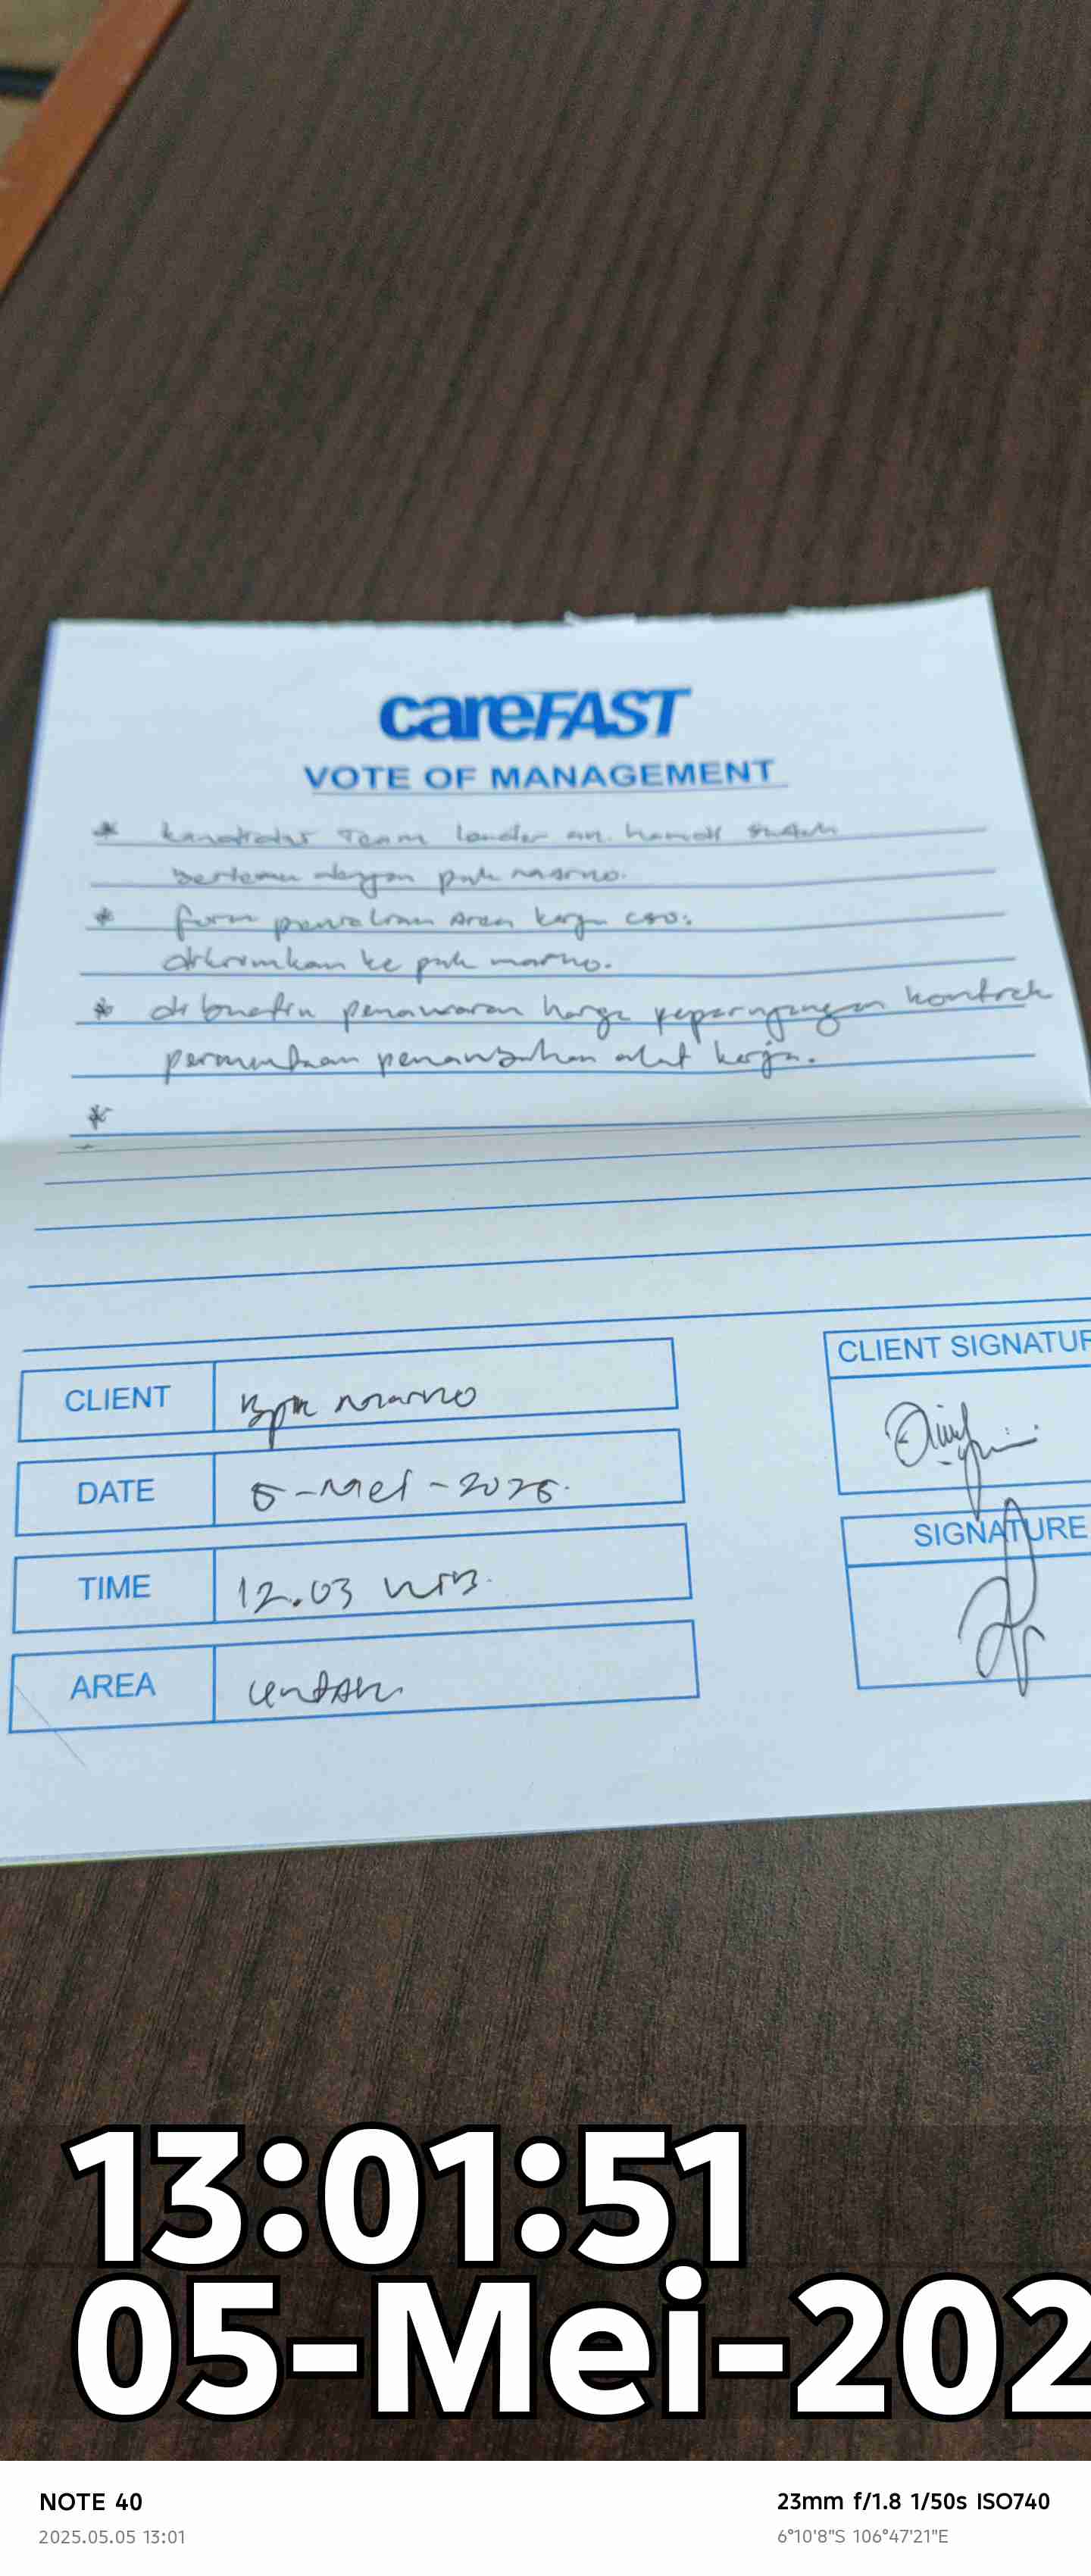 careFAST
VOTE OF MANAGEMENT
* kandidat Team leader an. hamdi sudah
bertemu dengan pak marno.
* form penilaian Area kerja cso.
dikirimkan ke pak marno.
* di buatin penawaran harga kontrak
permintaan penambahan alat kerja.
*
CLIENT Bpk marno
CLIENT SIGNATUR
DATE 5-Mei-2025.
SIGNATURE
TIME 12.03 WIB.
AREA
13:01:51
05-Mei-202
NOTE 40
23mm f/1.8 1/50s ISO740
2025.05.05 13:01
6°10'8"S 106°47'21"E